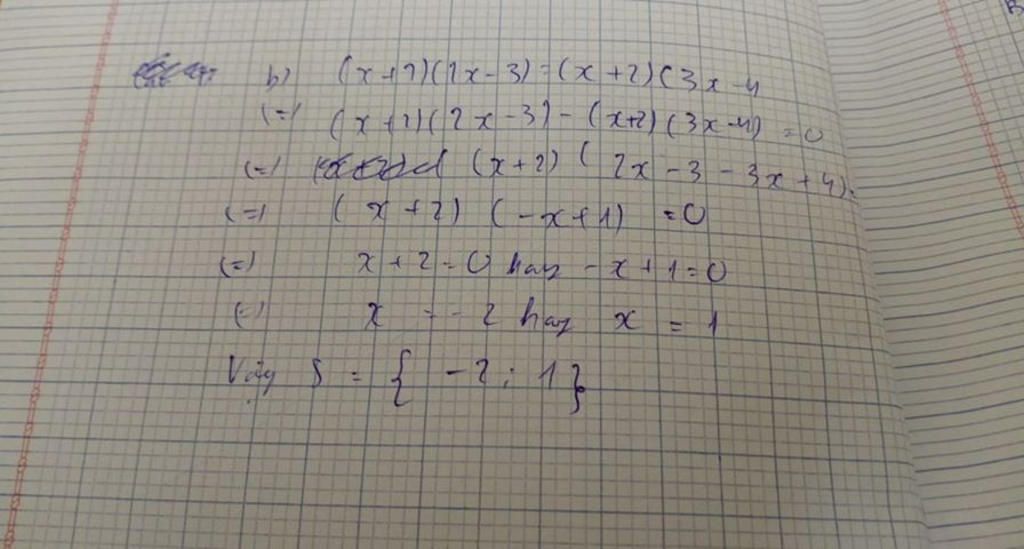 b) (x+2)(2x-3)=(x+2)(3x-4
(=) (x+2)(2x-3)-(x+2)(3x-4)=0
(=) (x+2)(2x-3-3x+4)=
(=) (x+2)(-x+1)=0
(=) x+2=0 hay -x+1=0
(=) x=-2 hay x=1
Vậy S={-2;1}